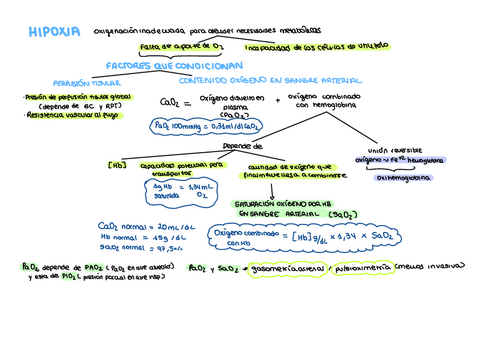 HIPOXIA oxigenación inadecuada para satisfacer necesidades metabólicas
Falta de aporte de O2 Incapacidad de las células de utilizarlo
FACTORES QUE CONDICIONAN
PERFUSIÓN TISULAR CONTENIDO OXÍGENO EN SANGRE ARTERIAL
· Presión de perfusión tisular global
(depende de GC y RPT)
· Resistencia vascular al flujo
CaO2 = Oxígeno disuelto en plasma (PaO2) + oxígeno combinado con hemoglobina
PaO2 100mmHg = 0,31ml/dl CaO2
Depende de
unión reversible
oxígeno ~ Fe+2 hemoglobina
oxihemoglobina
[Hb] capacidad potencial para transportar cantidad de oxígeno que finalmente llega a combinarse
1g Hb saturada = 1,34mL O2
SATURACIÓN OXÍGENO POR HB
EN SANGRE ARTERIAL (SaO2)
CaO2 normal = 20mL/dL
Hb normal = 15g/dL
SaO2 normal = 97,5%
Oxígeno combinado con Hb = [Hb]g/dL x 1,34 x SaO2
PaO2 depende de PAO2 (PaO2 en aire alveolo)
y esta de PIO2 (presión parcial en aire insp.)
PaO2 y SaO2 → gasometría arterial / pulsioximetría (menos invasiva)